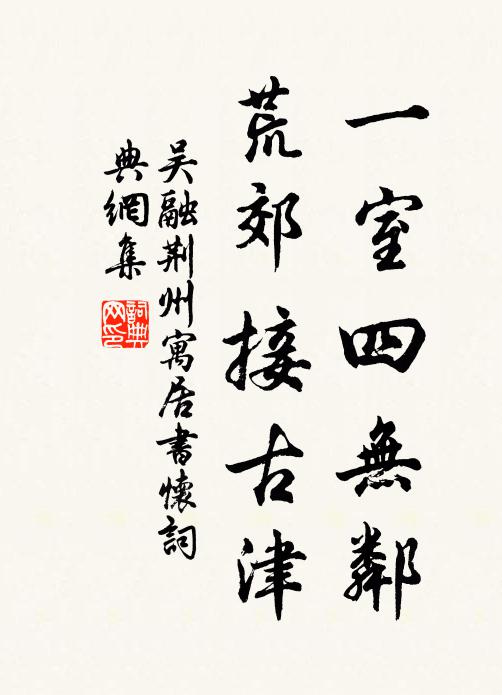 一室四無鄰
荒郊接古津
吳融荆州寓居書懷詞
典網集
詞典
网印